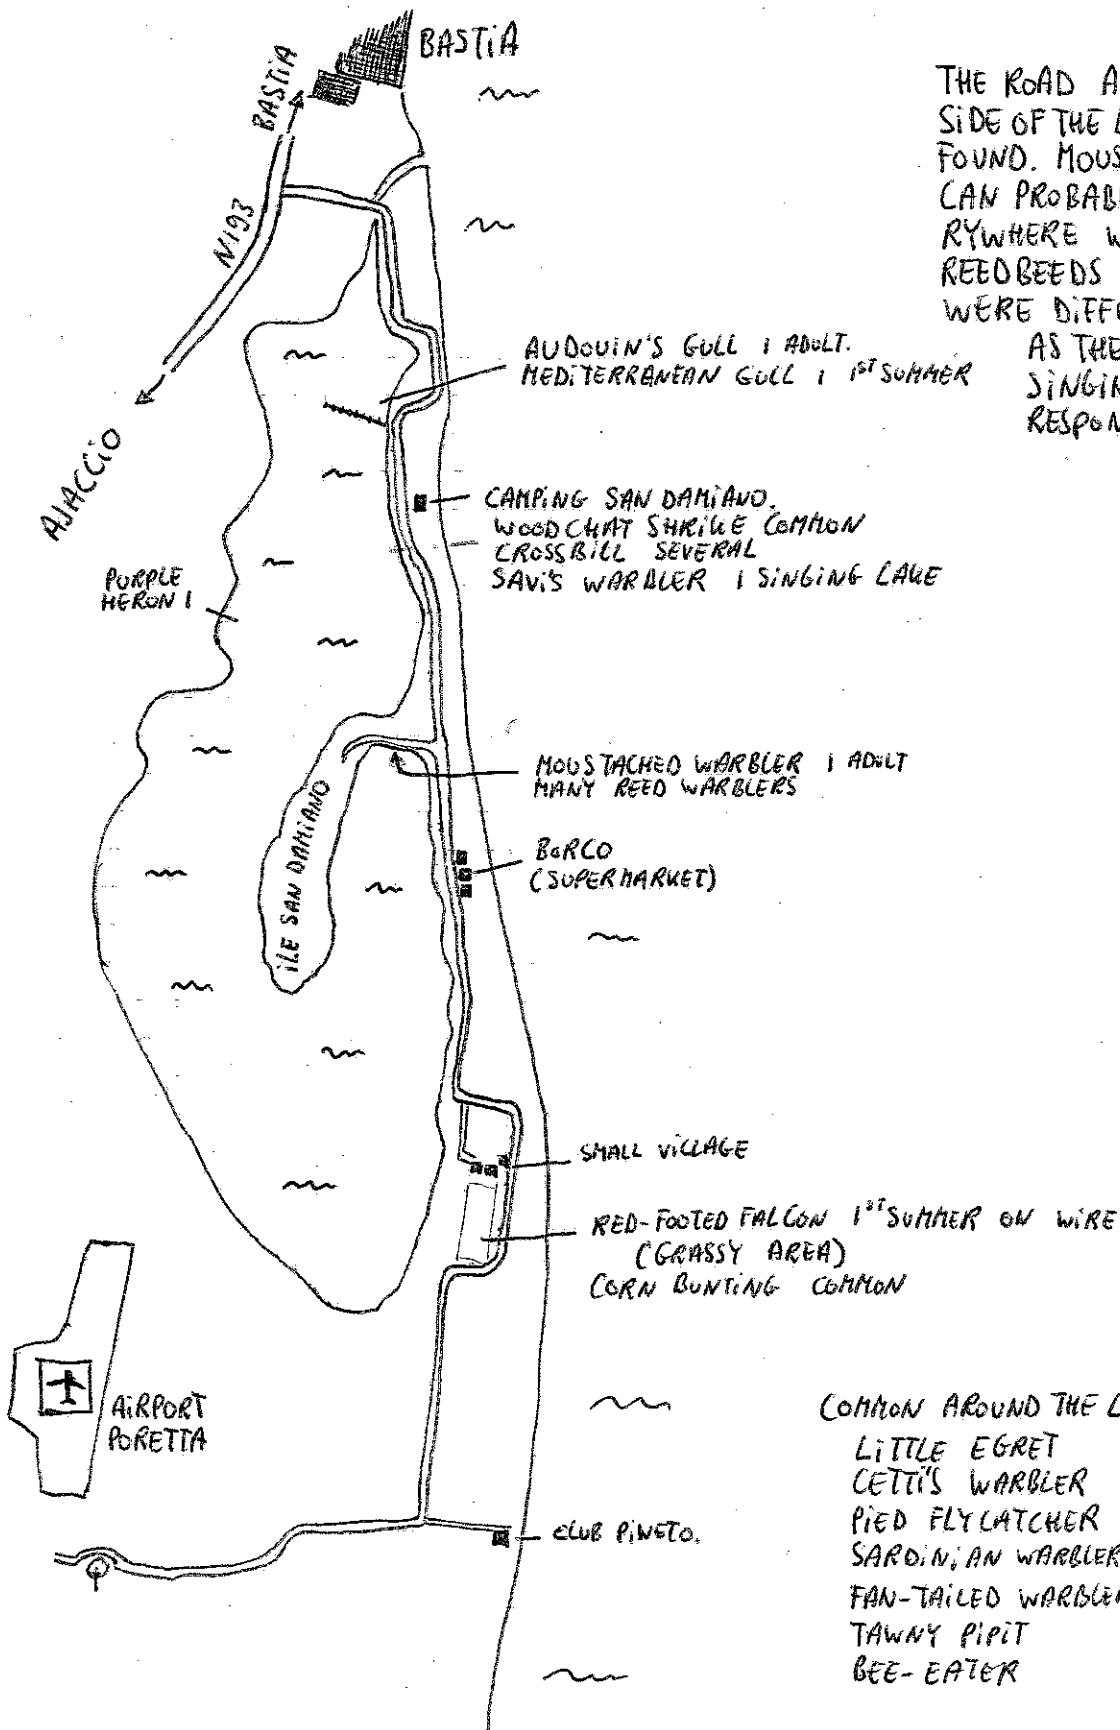 BASTiA
BASTiA
N193
AJACCiO
THE ROAD A
SiDE OF THE
FOUND. MOUS
CAN PROBABL
RYWHERE W
REEDBEEDS
WERE DiFFE
AS THE
SiNGiN
RESPON
AUDOUiN'S GULL 1 ADULT.
MEDiTERRANEAN GULL 1 1ST SUMMER
CAMPiNG SAN DAMiANO.
WOODCHAT SHRiKE COMMON
CROSSBiLL SEVERAL
SAVi'S WARBLER 1 SiNGiNG LAKE
PURPLE
HERON 1
MOUSTACHED WARBLER 1 ADULT
MANY REED WARBLERS
iLE SAN DAMiANO
BORCO
(SUPERMARKET)
SMALL ViLLAGE
RED-FOOTED FALCON 1ST SUMMER ON WiRE
(GRASSY AREA)
CORN BUNTiNG COMMON
AiRPORT
PORETTA
CLUB PiNETO.
COMMON AROUND THE L
LiTTLE EGRET
CETTi'S WARBLER
PiED FLYCATCHER
SARDiNiAN WARBLER
FAN-TAiLED WARBLER
TAWNY PiPiT
BEE-EATER